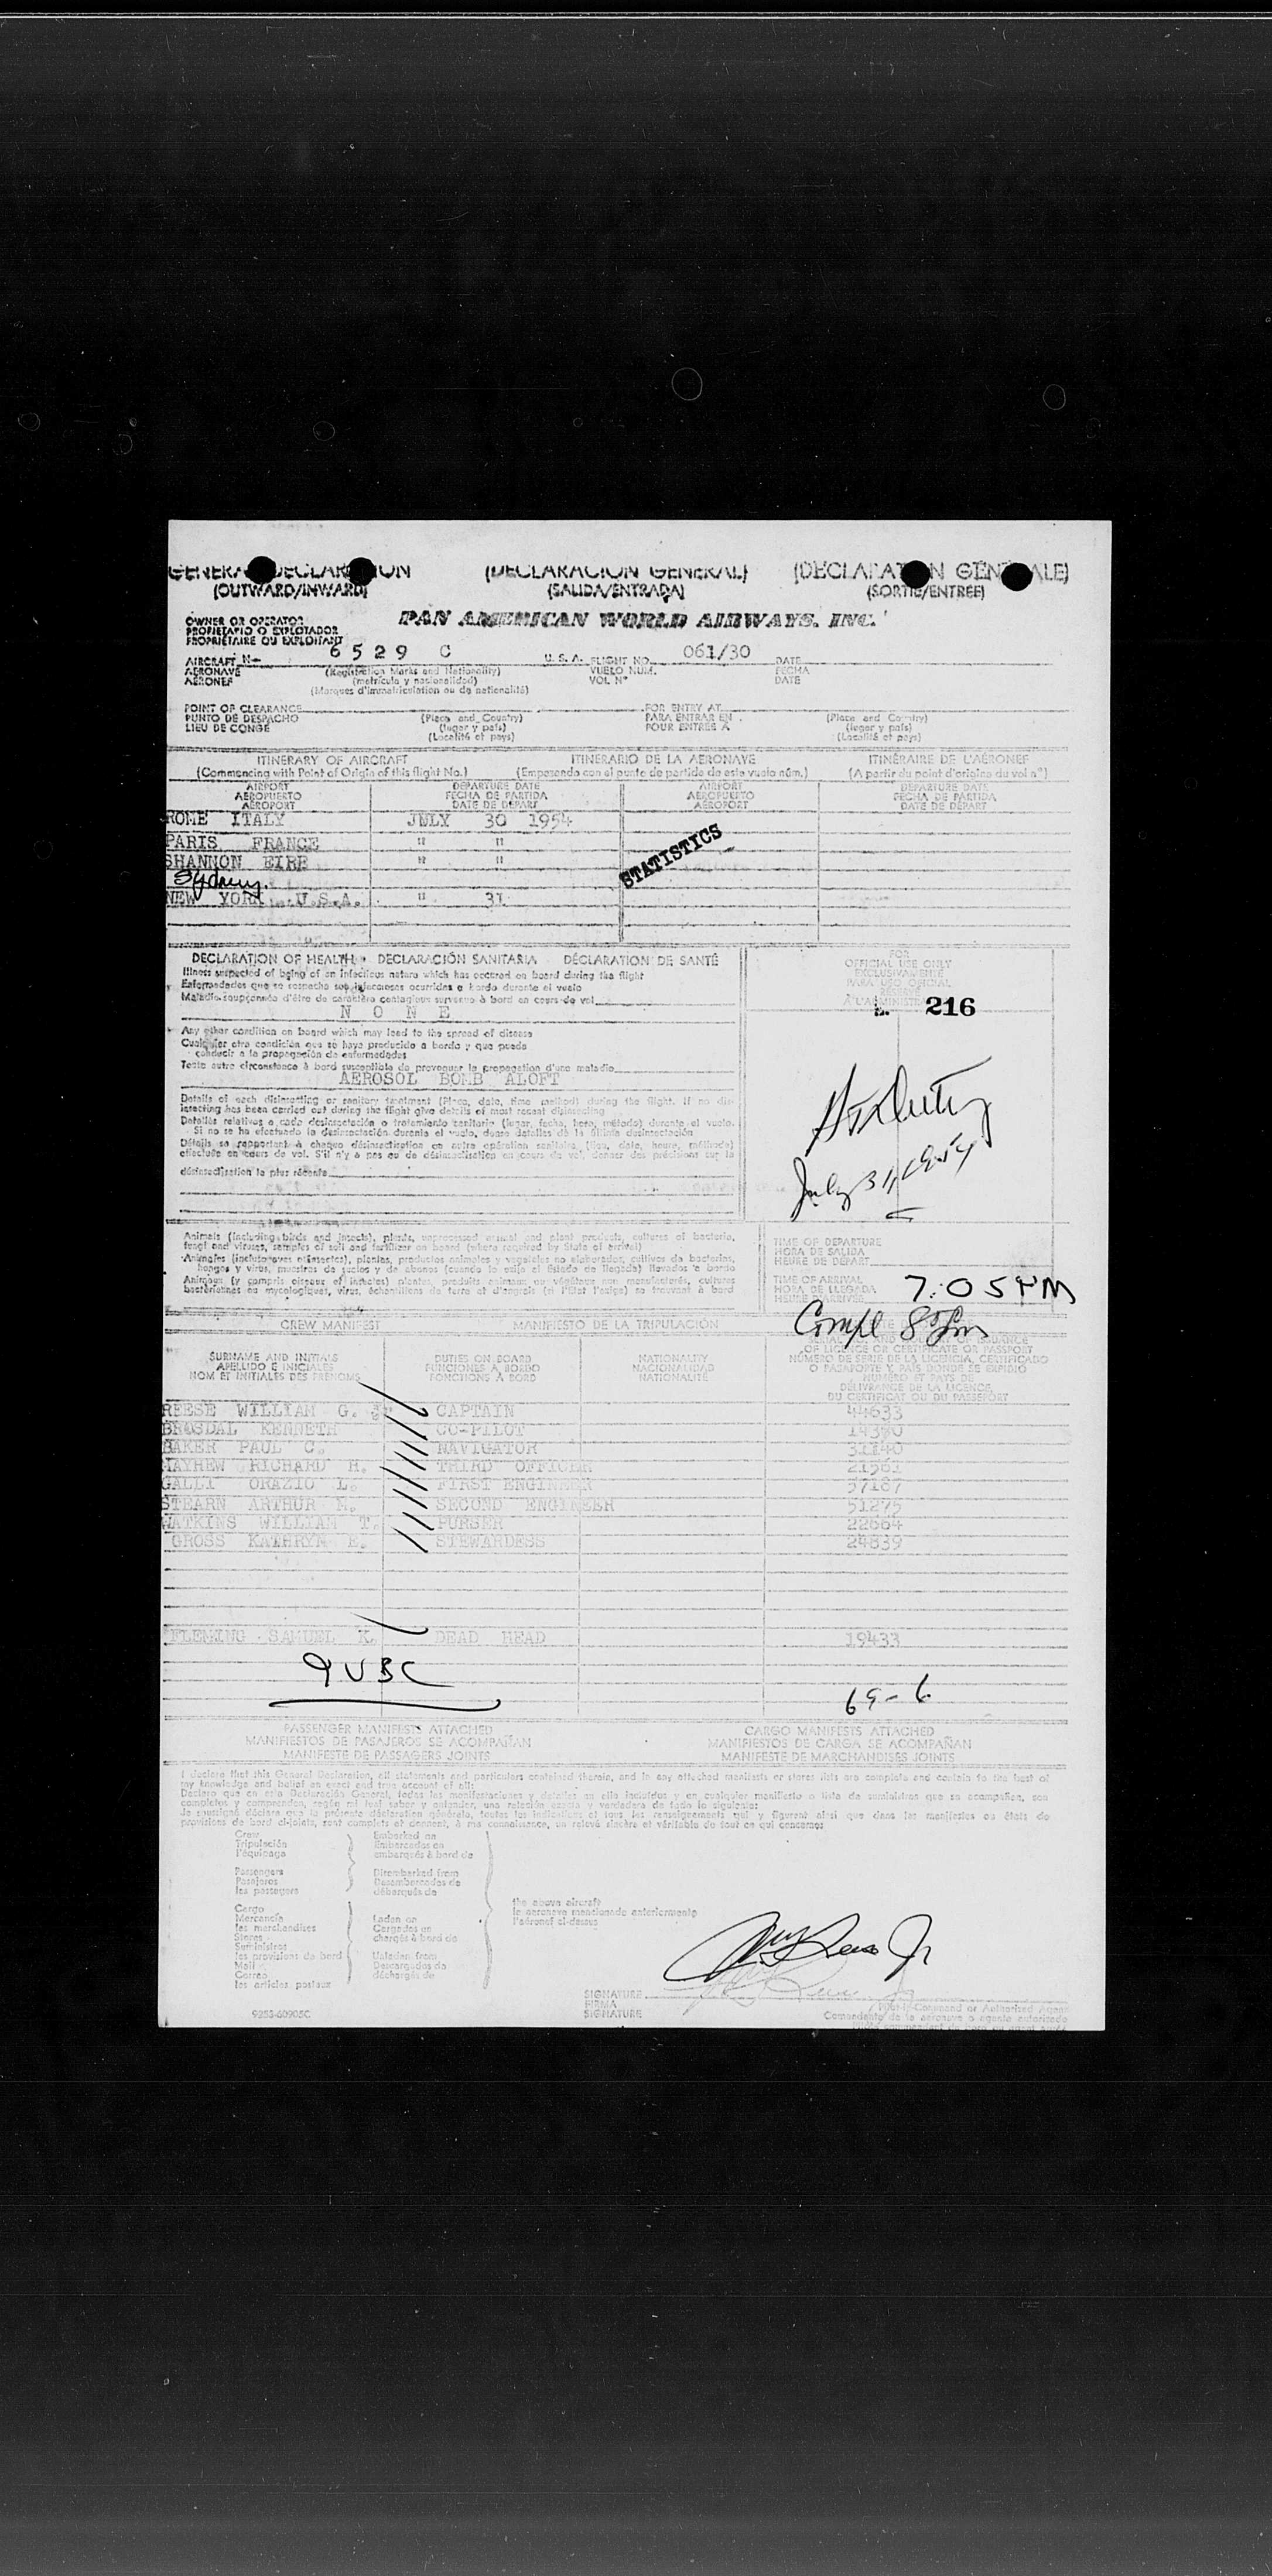 GENERAL DECLARATION (DECLARACION GENERAL) (DECLARATION GÉNÉRALE)
(OUTWARD/INWARD) (SALIDA/ENTRADA) (SORTIE/ENTREE)
OWNER OR OPERATOR PAN AMERICAN WORLD AIRWAYS, INC.
PROPIETARIO O EXPLOTADOR
PROPRIÉTAIRE OU EXPLOITANT
AIRCRAFT N- 6529 C U.S.A. FLIGHT NO. 061/30 DATE
AERONAVE (Registration Marks and Nationality) VUELO NUM. FECHA
AÉRONEF (matrícula y nacionalidad) VOL Nº DATE
(Marques d'immatriculation ou de nationalité)
POINT OF CLEARANCE FOR ENTRY AT
PUNTO DE DESPACHO (Place and Country) PARA ENTRAR EN (Place and Country)
LIEU DE CONGÉ (lugar y país) POUR ENTRÉE A (lugar y país)
(Localité et pays) (Localité et pays)
ITINERARY OF AIRCRAFT ITINERARIO DE LA AERONAVE ITINÉRAIRE DE L'AÉRONEF
(Commencing with Point of Origin of this flight No.) (Empezando con el punto de partida de este vuelo núm.) (A partir du point d'origine du vol nº)
AIRPORT DEPARTURE DATE AIRPORT DEPARTURE DATE
AEROPUERTO FECHA DE PARTIDA AEROPUERTO FECHA DE PARTIDA
AÉROPORT DATE DE DÉPART AÉROPORT DATE DE DÉPART
ROME ITALY JULY 30 1954
PARIS FRANCE " "
SHANNON EIRE " "
STATISTICS
Sydney.
NEW YORK U.S.A. " 31
DECLARATION OF HEALTH • DECLARACIÓN SANITARIA DÉCLARATION DE SANTÉ
Illness suspected of being of an infectious nature which has occured on board during the flight
Enfermedades que se sospecha son infecciosas ocurridas a bordo durante el vuelo
Maladie soupçonnée d'être de caractère contagieux survenue à bord en cours de vol
NONE
FOR
OFFICIAL USE ONLY
EXCLUSIVAMENTE
PARA USO OFICIAL
RÉSERVÉ
À L'ADMINISTRATION
216
Any other condition on board which may lead to the spread of disease
Cualquier otra condición que se haya producido a bordo y que pueda
conducir a la propagación de enfermedades
Toute autre circonstance à bord susceptible de provoquer la propagation d'une maladie
AEROSOL BOMB ALOFT
Details of each disinsecting or sanitary treatment (Place, date, time method) during the flight. If no dis-
insecting has been carried out during the flight give details of most recent disinsecting
Detalles relativos a cada desinsectación o tratamiento sanitario (lugar, fecha, hora, método) durante el vuelo.
Si no se ha efectuado la desinsectación durante el vuelo, dense detalles de la última desinsectación
Détails se rapportant à chaque désinsectisation ou autre opération sanitaire (lieu, date, heure, méthode)
effectuée en cours de vol. S'il n'y a pas eu de désinsectisation en cours de vol, donner des précisions sur la
désinsectisation la plus récente
July 31, 1954
Animals (including birds and insects), plants, unprocessed animal and plant products, cultures of bacteria,
fungi and viruses, samples of soil and fertilizer on board (where required by State of arrival)
Animales (inclusive aves e insectos), plantas, productos animales y vegetales no elaborados, cultivos de bacterias,
hongos y virus, muestras de suelos y de abonos (cuando lo exija el Estado de llegada) llevados a bordo
Animaux (y compris oiseaux et insectes) plantes, produits animaux ou végétaux non manufacturés, cultures
bactériennes ou mycologiques, virus, échantillons de terre et d'engrais (si l'Etat l'exige) se trouvant à bord
TIME OF DEPARTURE
HORA DE SALIDA
HEURE DE DÉPART
TIME OF ARRIVAL
HORA DE LLEGADA 7:05 PM
HEURE D'ARRIVÉE
Compl
CREW MANIFEST MANIFIESTO DE LA TRIPULACIÓN
SURNAME AND INITIALS DUTIES ON BOARD NATIONALITY OF LICENCE OR CERTIFICATE OR PASSPORT
APELLIDO E INICIALES FUNCIONES A BORDO NACIONALIDAD NÚMERO DE SERIE DE LA LICENCIA, CERTIFICADO
NOM ET INITIALES DES PRÉNOMS FONCTIONS À BORD NATIONALITÉ O PASAPORTE Y PAÍS DONDE SE EXPIDIÓ
NUMÉRO ET PAYS DE
DÉLIVRANCE DE LA LICENCE,
DU CERTIFICAT OU DU PASSEPORT
REESE WILLIAM G. Jr CAPTAIN 44633
BROSDAL KENNETH CO-PILOT
BAKER PAUL C. NAVIGATOR 31140
MAYHEW RICHARD H. THIRD OFFICER 21561
GALLI ORAZIO L. FIRST ENGINEER 57187
STEARN ARTHUR M. SECOND ENGINEER 51275
WATKINS WILLIAM T. PURSER 22664
GROSS KATHRYN E. STEWARDESS 24839
FLEMING SAMUEL K. DEAD HEAD 19433
9 USC
69-6
PASSENGER MANIFESTS ATTACHED CARGO MANIFESTS ATTACHED
MANIFIESTOS DE PASAJEROS SE ACOMPAÑAN MANIFIESTOS DE CARGA SE ACOMPAÑAN
MANIFESTE DE PASSAGERS JOINTS MANIFESTE DE MARCHANDISES JOINTS
I declare that this General Declaration, all statements and particulars contained therein, and in any attached manifests or stores lists are complete and contain to the best of
my knowledge and belief an exact and true account of all:
Declaro que en esta Declaración General, todas las manifestaciones y detalles en ella incluidos y en cualquier manifiesto o lista de suministros que se acompañan, son
completos y comprenden, según mi leal saber y entender, una relación exacta y verdadera de todo lo siguiente:
Je soussigné déclare que la présente déclaration générale, toutes les indications et tous les renseignements qui y figurent ainsi que dans les manifestes ou états de
provisions de bord ci-joints, sont complets et donnent, à ma connaissance, un relevé sincère et véritable de tout ce qui concerne:
Crew Embarked on
Tripulación Embarcados en
l'équipage embarqués à bord de
Passengers Disembarked from
Pasajeros Desembarcados de
les passagers débarqués de
the above aircraft
la aeronave mencionada anteriormente
l'aéronef ci-dessus
Cargo
Mercancía Laden on
les marchandises Cargados en
Stores chargés à bord de
Suministros
les provisions de bord Unladen from
Mail Descargados de
Correo déchargés de
les articles postaux
SIGNATURE
FIRMA Pilot-in-Command or Authorized Agent
9253-60905C SIGNATURE Comandante de la aeronave o agente autorizado